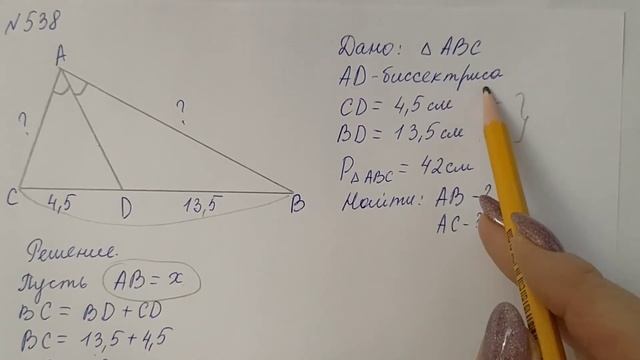 №538
A
?
?
C 4,5 D 13,5 B
Дано: △ ABC
AD-биссектриса
CD = 4,5 см
BD = 13,5 см
P△ABC = 42 см
Найти: AB - ?
AC - ?
Решение.
Пусть AB = x
BC = BD + CD
BC = 13,5 + 4,5